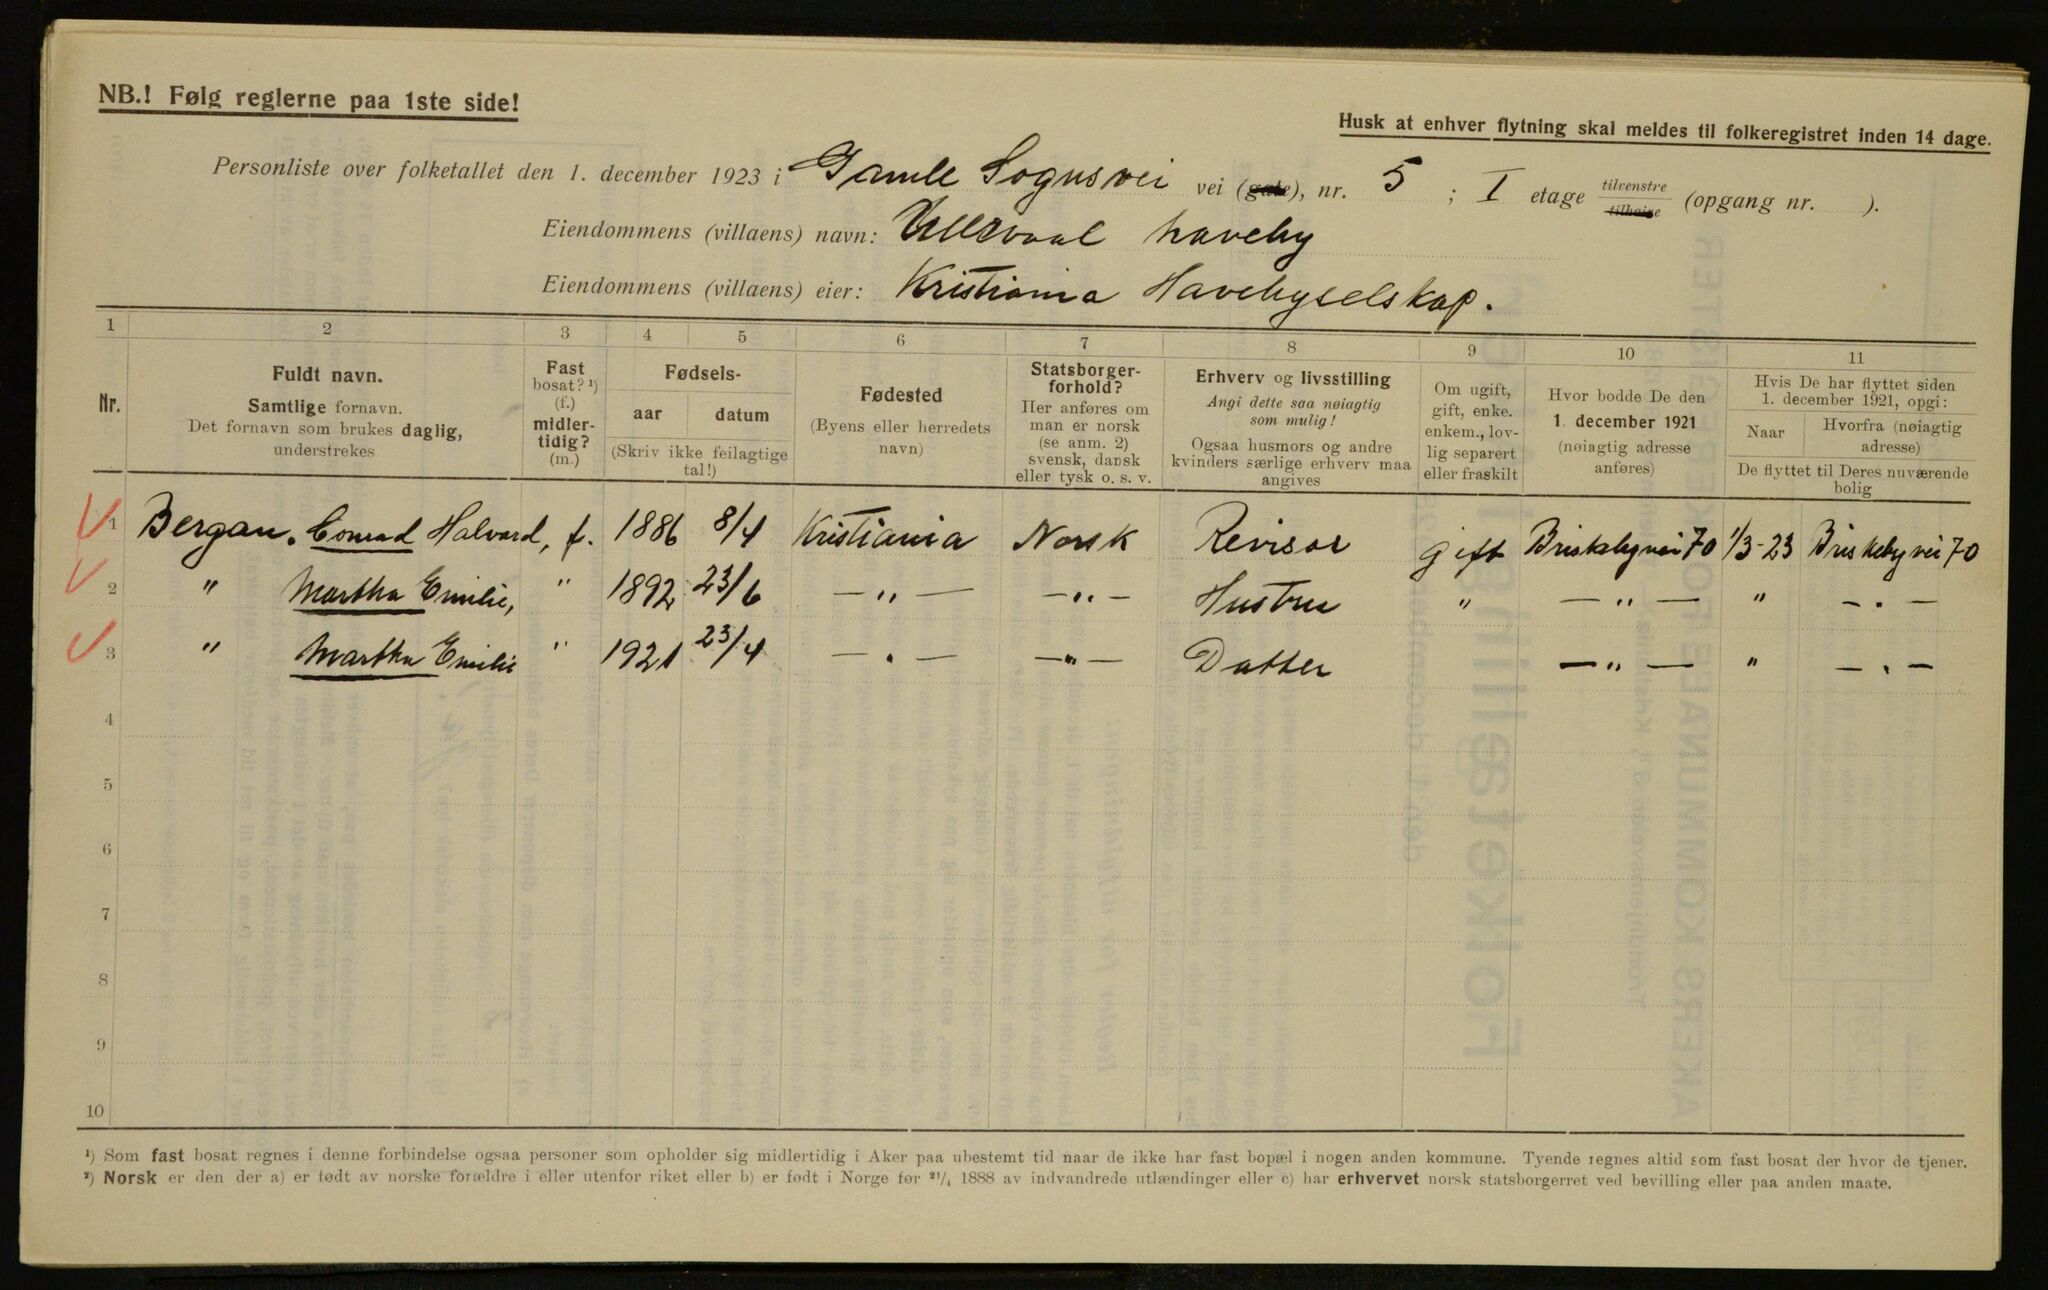 NB.! Følg reglerne paa 1ste side!
Husk at enhver flytning skal meldes til folkeregistret inden 14 dage.
Personliste over folketallet den 1. december 1923 i Gamle Sognsvei vei (gate), nr. 5 ; I etage tilvenstre tilhøire (opgang nr. ).
Eiendommens (villaens) navn: Ullevaal haveby
Eiendommens (villaens) eier: Kristiania Havebyselskap.
1 2 3 4 5 6 7 8 9 10 11
Nr.
Fuldt navn.
Samtlige fornavn.
Det fornavn som brukes daglig,
understrekes
Fast
bosat? ¹)
(f.)
midler-
tidig?
(m.)
Fødsels-
aar datum
(Skriv ikke feilagtige
tal!)
Fødested
(Byens eller herredets
navn)
Statsborger-
forhold?
Her anføres om
man er norsk
(se anm. 2)
svensk, dansk
eller tysk o. s. v.
Erhverv og livsstilling
Angi dette saa nøiagtig
som mulig!
Ogsaa husmors og andre
kvinders særlige erhverv maa
angives
Om ugift,
gift, enke.
enkem., lov-
lig separert
eller fraskilt
Hvor bodde De den
1. december 1921
(nøiagtig adresse
anføres)
Hvis De har flyttet siden
1. december 1921, opgi:
Naar
Hvorfra (nøiagtig
adresse)
De flyttet til Deres nuværende
bolig
1 Bergan, Conrad Halvard, f. 1886 8/4 Kristiania Norsk Revisor gift Briskebyvei 70 1/3-23 Briskebyvei 70
2 " Martha Emilie, " 1892 23/6 — " — — " — Hustru " — " — " — " —
3 " Martha Emilie " 1921 23/4 — " — — " — Datter — " — " — " —
4
5
6
7
8
9
10
¹) Som fast bosat regnes i denne forbindelse ogsaa personer som opholder sig midlertidig i Aker paa ubestemt tid naar de ikke har fast bopæl i nogen anden kommune. Tyende regnes altid som fast bosat der hvor de tjener.
²) Norsk er den der a) er født av norske forældre i eller utenfor riket eller b) er født i Norge før ²¹/₄ 1888 av indvandrede utlændinger eller c) har erhvervet norsk statsborgerret ved bevilling eller paa anden maate.